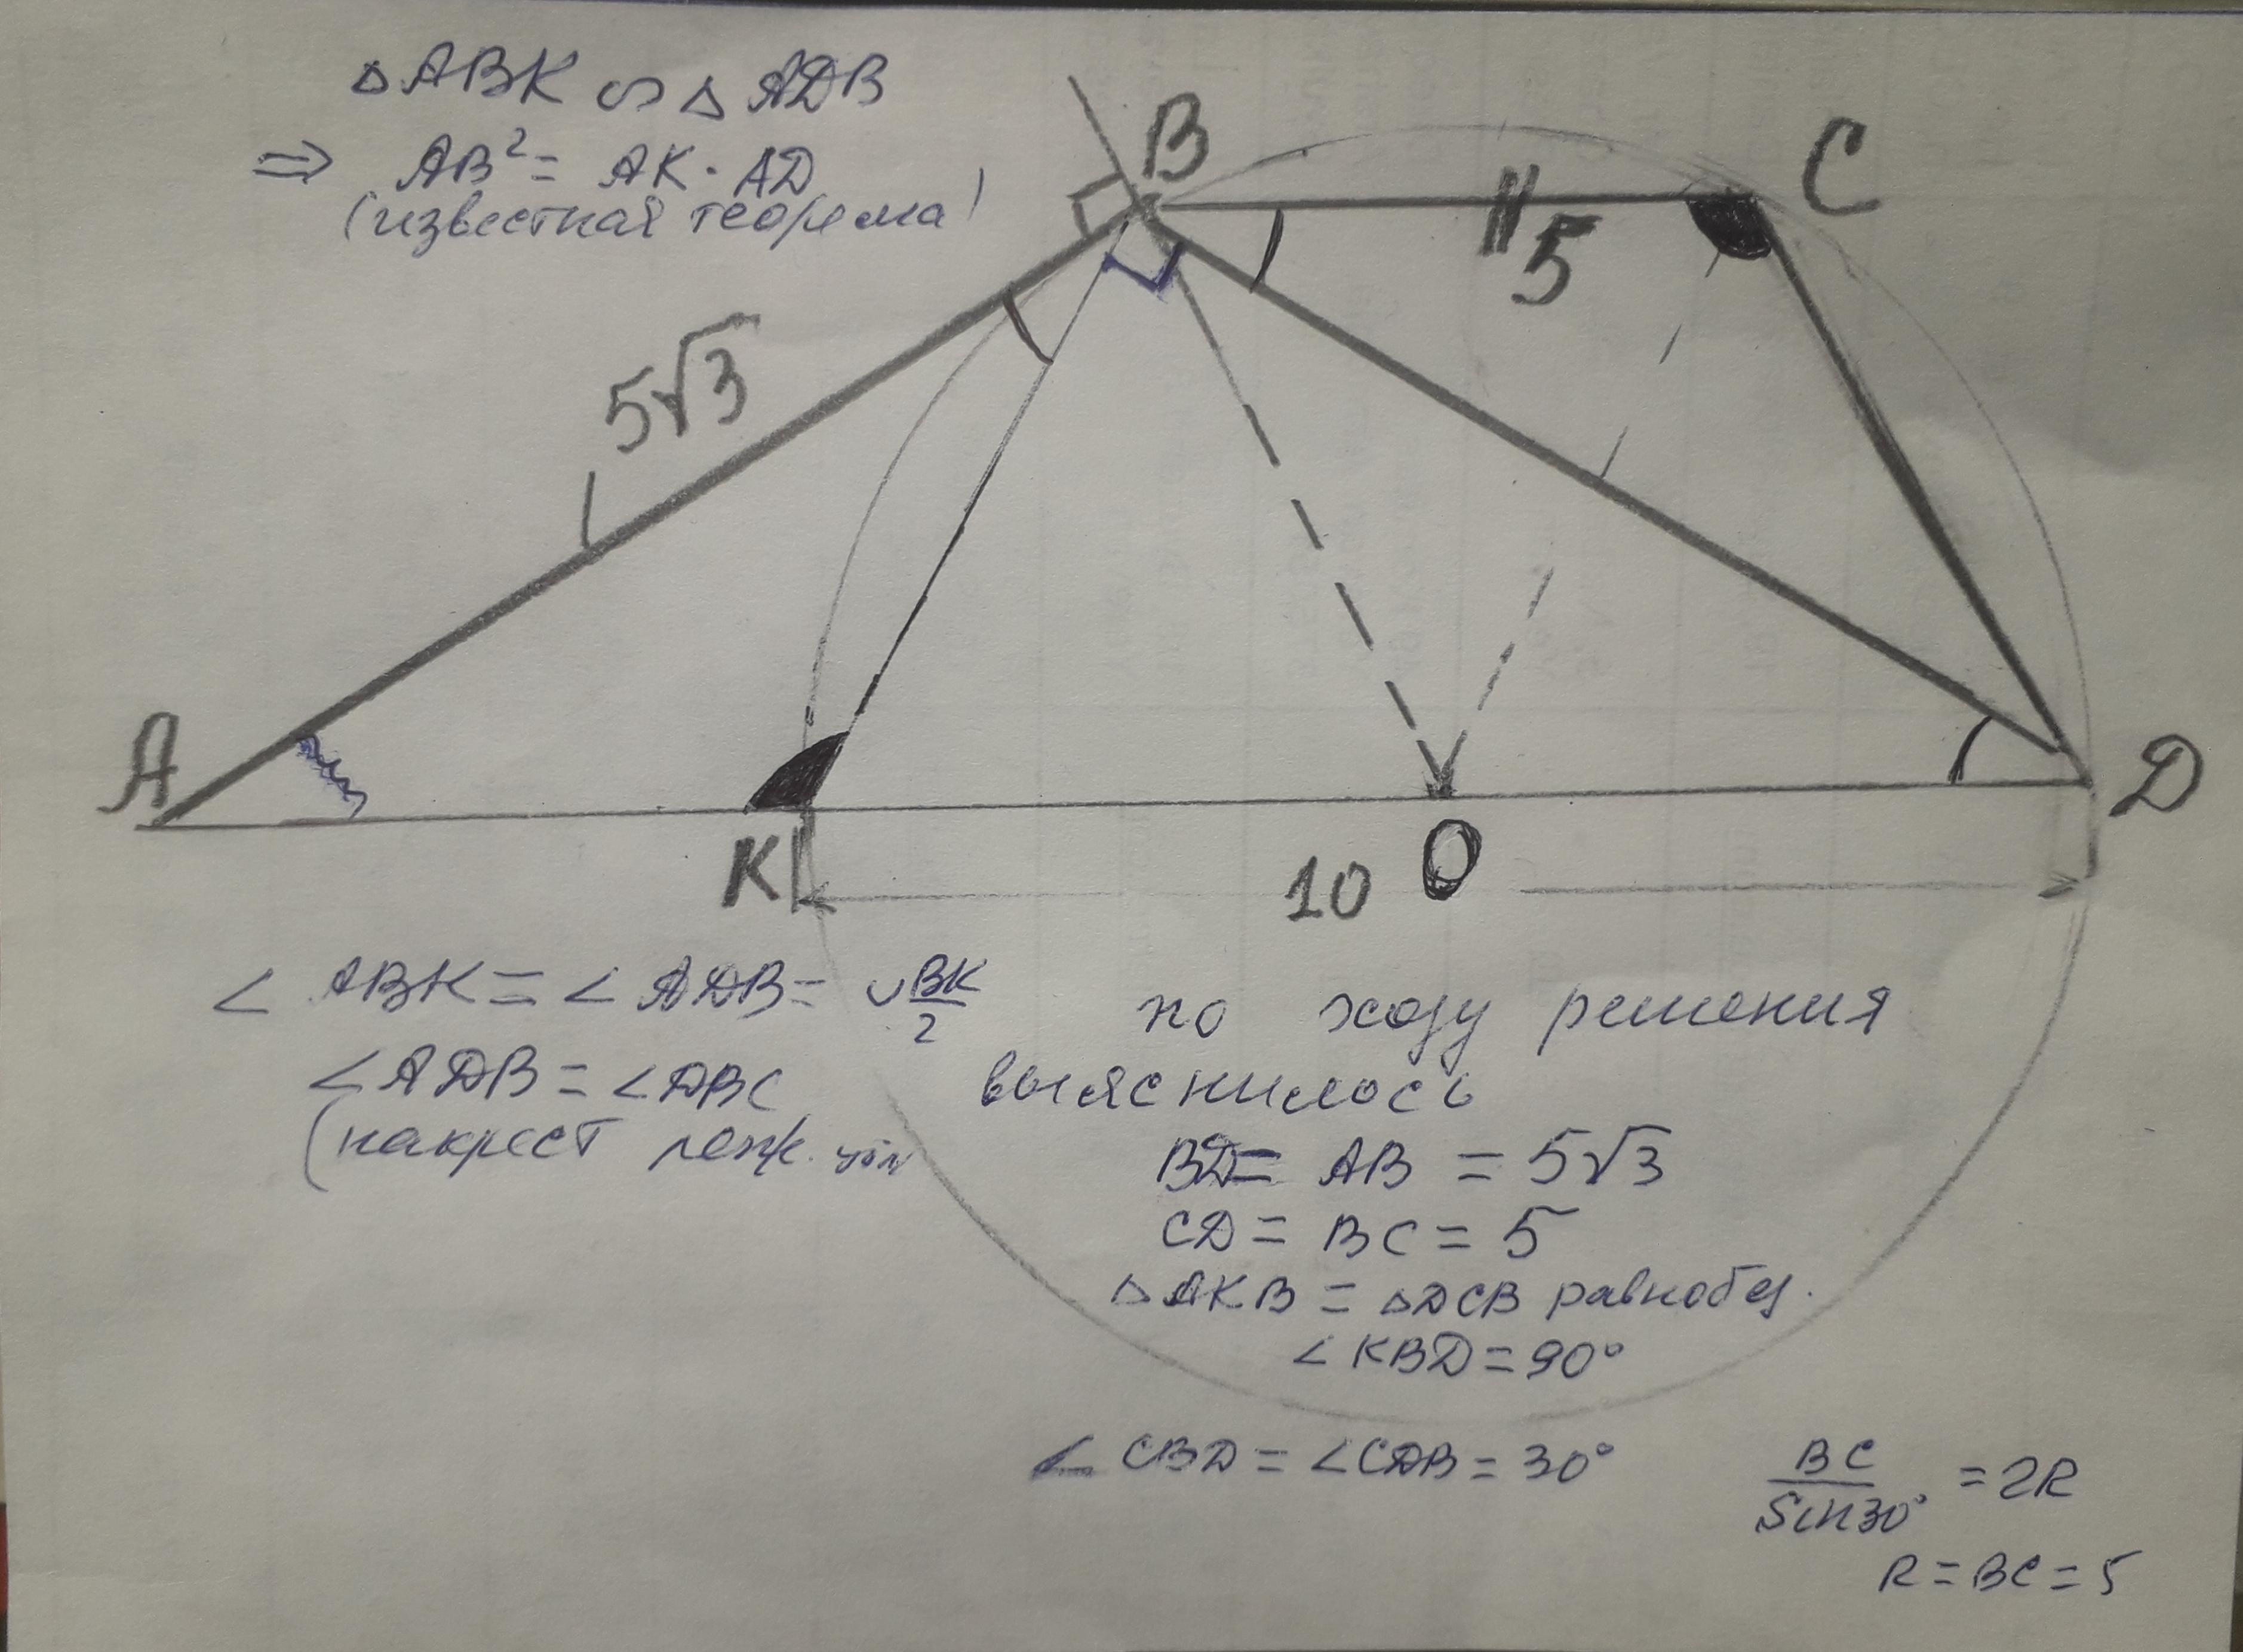 △ABK ∽ △ADB
⇒ AB² = AK · AD
(известная теорема)
B
C
5
5√3
A
K
O
D
10
∠ABK = ∠ADB = ∪BK/2
∠ADB = ∠DBC
(накрест леж.
по ходу решения
выяснилось
BD = AB = 5√3
CD = BC = 5
△AKB = △DCB равнобед.
∠KBD = 90°
∠CBD = ∠CDB = 30°
BC/Sin30° = 2R
R = BC = 5